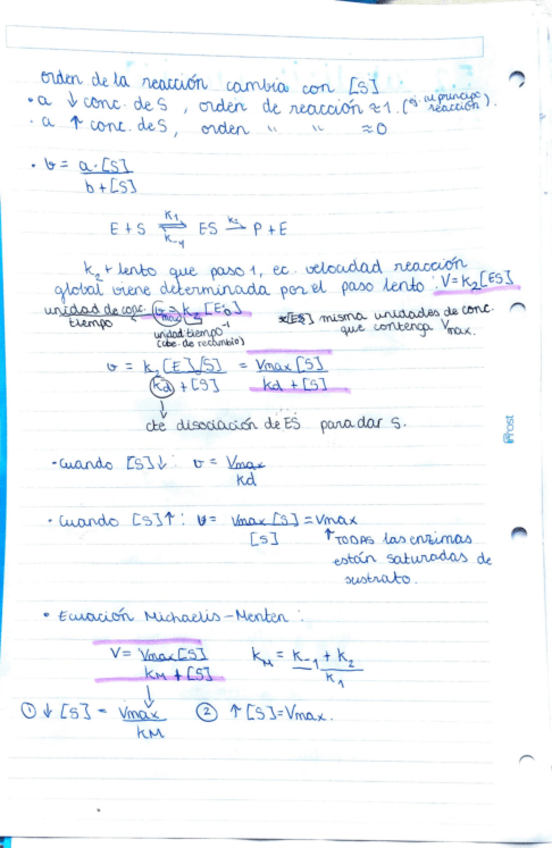 orden de la reacción cambia con [S]
• a ↓ conc. de S, orden de reacción ≈ 1. (ej. al principio reacción).
• a ↑ conc. de S, orden " " ≈ 0
• v = a·[S] / b + [S]
E + S ⇌ ES → P + E
K1 K-1 K2
k2 + lento que paso 1, ec. velocidad reacción
global viene determinada por el paso lento: V = k2 [ES]
unidad de conc. / tiempo ← Vmax = k2 [E0]
unidad tiempo⁻¹
(cte. de recambio)
misma unidades de conc.
que contenga Vmax.
v = k2 [E] [S] / kd + [S] = Vmax [S] / kd + [S]
↓
cte disociación de ES para dar S.
- Cuando [S]↓: v = Vmax / kd
• Cuando [S]↑: v = Vmax [S] / [S] = Vmax
↑ TODAS las enzimas
están saturadas de
sustrato.
• Ecuación Michaelis-Menten:
V = Vmax [S] / KM + [S] KM = K-1 + K2 / K1
↓
① ↓ [S] = Vmax / KM ② ↑ [S] = Vmax.